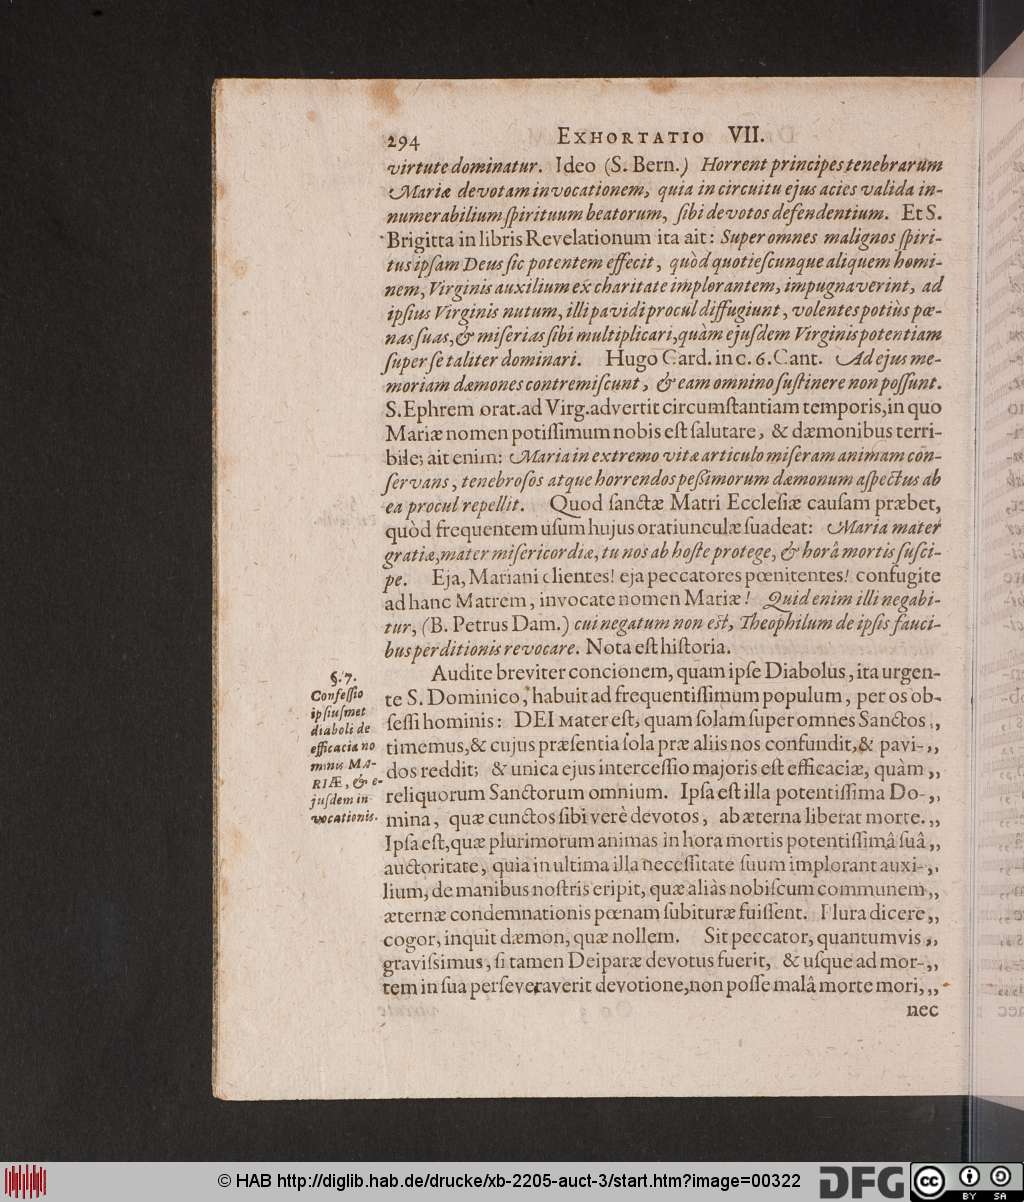 294 EXHORTATIO VII.
virtute dominatur. Ideo (S. Bern.) Horrent principes tenebrarum
Mariæ devotam invocationem, quia in circuitu ejus acies valida in-
numerabilium ſpirituum beatorum, ſibi devotos defendentium. Et S.
Brigitta in libris Revelationum ita ait: Super omnes malignos ſpiri-
tus ipſam Deus ſic potentem effecit, quòd quotieſcunque aliquem homi-
nem, Virginis auxilium ex charitate implorantem, impugnaverint, ad
ipſius Virginis nutum, illi pavidi procul diffugiunt, volentes potiùs pœ-
nas ſuas, & miſerias ſibi multiplicari, quàm ejuſdem Virginis potentiam
ſuper ſe taliter dominari. Hugo Card. in c. 6. Cant. Ad ejus me-
moriam dæmones contremiſcunt, & eam omnino ſuſtinere non poſſunt.
S. Ephrem orat. ad Virg. advertit circumſtantiam temporis, in quo
Mariæ nomen potiſſimum nobis eſt ſalutare, & dæmonibus terri-
bile; ait enim: Maria in extremo vitæ articulo miſeram animam con-
ſervans, tenebroſos atque horrendos peſsimorum dæmonum aſpectus ab
ea procul repellit. Quod ſanctæ Matri Eccleſiæ cauſam præbet,
quòd frequentem uſum hujus oratiunculæ ſuadeat: Maria mater
gratiæ, mater miſericordiæ, tu nos ab hoſte protege, & horâ mortis ſuſci-
pe. Eja, Mariani clientes! eja peccatores pœnitentes! confugite
ad hanc Matrem, invocate nomen Mariæ! Quid enim illi negabi-
tur, (B. Petrus Dam.) cui negatum non eſt, Theophilum de ipſis fauci-
bus perditionis revocare. Nota eſt hiſtoria.
§. 7.
Confeſſio
ipſiuſmet
diaboli de
efficacia no
minis MA-
RIÆ, & e-
juſdem in-
vocationis.
Audite breviter concionem, quam ipſe Diabolus, ita urgen-
te S. Dominico, habuit ad frequentiſſimum populum, per os ob-
ſeſſi hominis: DEI Mater eſt, quam ſolam ſuper omnes Sanctos „
timemus, & cujus præſentia ſola præ aliis nos confundit, & pavi- „
dos reddit; & unica ejus interceſſio majoris eſt efficaciæ, quàm „
reliquorum Sanctorum omnium. Ipſa eſt illa potentiſſima Do- „
mina, quæ cunctos ſibi verè devotos, ab æterna liberat morte. „
Ipſa eſt, quæ plurimorum animas in hora mortis potentiſſimâ ſuâ „
auctoritate, quia in ultima illa neceſſitate ſuum implorant auxi- „
lium, de manibus noſtris eripit, quæ aliàs nobiſcum communem „
æternæ condemnationis pœnam ſubituræ fuiſſent. Plura dicere „
cogor, inquit dæmon, quæ nollem. Sit peccator, quantumvis „
graviſsimus, ſi tamen Deiparæ devotus fuerit, & uſque ad mor- „
tem in ſua perſeveraverit devotione, non poſſe malâ morte mori, „
nec
© HAB http://diglib.hab.de/drucke/xb-2205-auct-3/start.htm?image=00322
DFG
cc BY SA